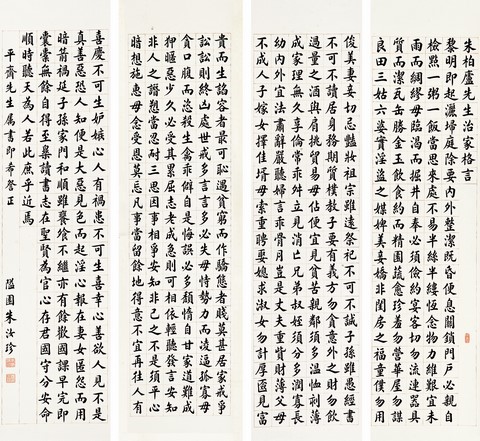 朱柏廬先生治家格言
黎明即起灑埽庭除要內外整潔既昏便息關鎖門戶必親自
檢點一粥一飯當思來處不易半絲半縷恆念物力維艱宜未
雨而綢繆毋臨渴而掘井自奉必須儉約宴客切勿流連器具
質而潔瓦缶勝金玉飲食約而精園蔬愈珍羞勿營華屋勿謀
良田三姑六婆實淫盜之媒婢美妾嬌非閨房之福童僕勿用
俊美妻妾切忌豔妝祖宗雖遠祭祀不可不誠子孫雖愚經書
不可不讀居身務期質樸教子要有義方勿貪意外之財勿飲
過量之酒與肩挑貿易毋佔便宜見貧苦親鄰須多溫恤刻薄
成家理無久享倫常乖舛立見消亡兄弟叔姪須分多潤寡長
幼內外宜法肅辭嚴聽婦言乖骨肉豈是丈夫重貲財薄父母
不成人子嫁女擇佳壻毋索重聘娶媳求淑女勿計厚匳見富
貴而生諂容者最可恥遇貧窮而作驕態者賤莫甚居家戒爭
訟訟則終凶處世戒多言言多必失毋恃勢力而凌逼孤寡毋
貪口腹而恣殺生禽乖僻自是悔誤必多頹惰自甘家道難成
狎暱惡少久必受其累屈志老成急則可相依輕聽發言安知
非人之譖愬當忍耐三思因事相爭安知非己之不是須平心
暗想施惠毋念受恩莫忘凡事當留餘地得意不宜再往人有
喜慶不可生妒嫉心人有禍患不可生喜幸心善欲人見不是
真善惡恐人知便是大惡見色而起淫心報在妻女匿怨而用
暗箭禍延子孫家門和順雖饔飧不繼亦有餘歡國課早完即
囊橐無餘自得至樂讀書志在聖賢為官心存君國守分安命
順時聽天為人若此庶乎近焉
平齋先生屬書即希詧正
隘園朱汝珍